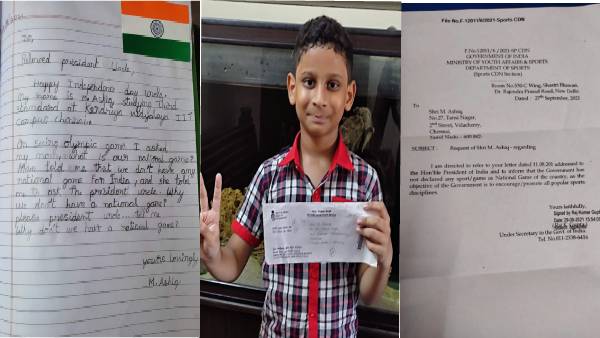 To,
Beloved president Uncle,
Happy Independence day uncle.
My name is M.Ashiq studying third
standard at Kendriya vidyalaya IIT
campus Chennai.
On seeing olympic game I asked
my mom, what is our national game?
Mom told me that we don't have any
national game for India, and she told
me to ask the president uncle. Why
we don't have a national game?
please president uncle tell me
Why don't we have a national game?
yours lovingly
M.Ashiq
File No.F-12011/6/2021-Sports CDN
F.No.12011/6/2021-SP.CDN
GOVERNMENT OF INDIA
MINISTRY OF YOUTH AFFAIRS & SPORTS
DEPARTMENT OF SPORTS
(Sports CDN Section)
Room No.550-C Wing, Shastri Bhawan,
Dr. Rajendra Prasad Road, New Delhi
Dated : 27th September, 2021
To
Shri M. Ashiq,
No.27, Tansi Nagar,
2nd Street, Velachery,
Chennai,
SUBJECT : Request of Shri M. Ashiq - regarding
I am directed to refer to your letter dated 11.08.201 addressed to
the Hon'ble President of India and to inform that the Government has
not declared any sport/game as National Game of the country, as the
objective of the Government is to encourage/promote all popular sports
disciplines.
Yours faithfully,
Signed by Raj Kumar Gupta
Under Secretary to the Govt. of India.
Tel. No.011-2338-6436